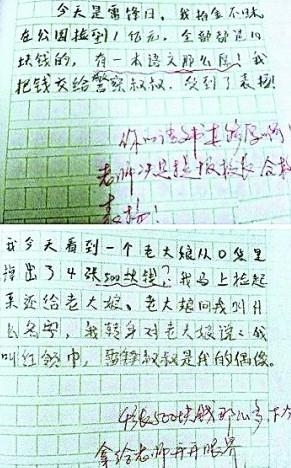 今天是雷锋日，我拾金不昧
在公园捡到1亿元，全部都是10
块钱的，有一本语文那么厚！我
把钱交给警察叔叔，受到了表扬！
你的语文书真够厚啊！
老师决定提报校长合
表扬！
我今天看到一个老大娘从口袋里
掉出了4张500块钱，我马上捡起
来还给老大娘、老大娘问我叫什
么名字，我转身对老大娘说：我
叫红领巾，雷锋叔叔是我的偶像。
4张500块钱那么多，下次
拿给老师开开眼界